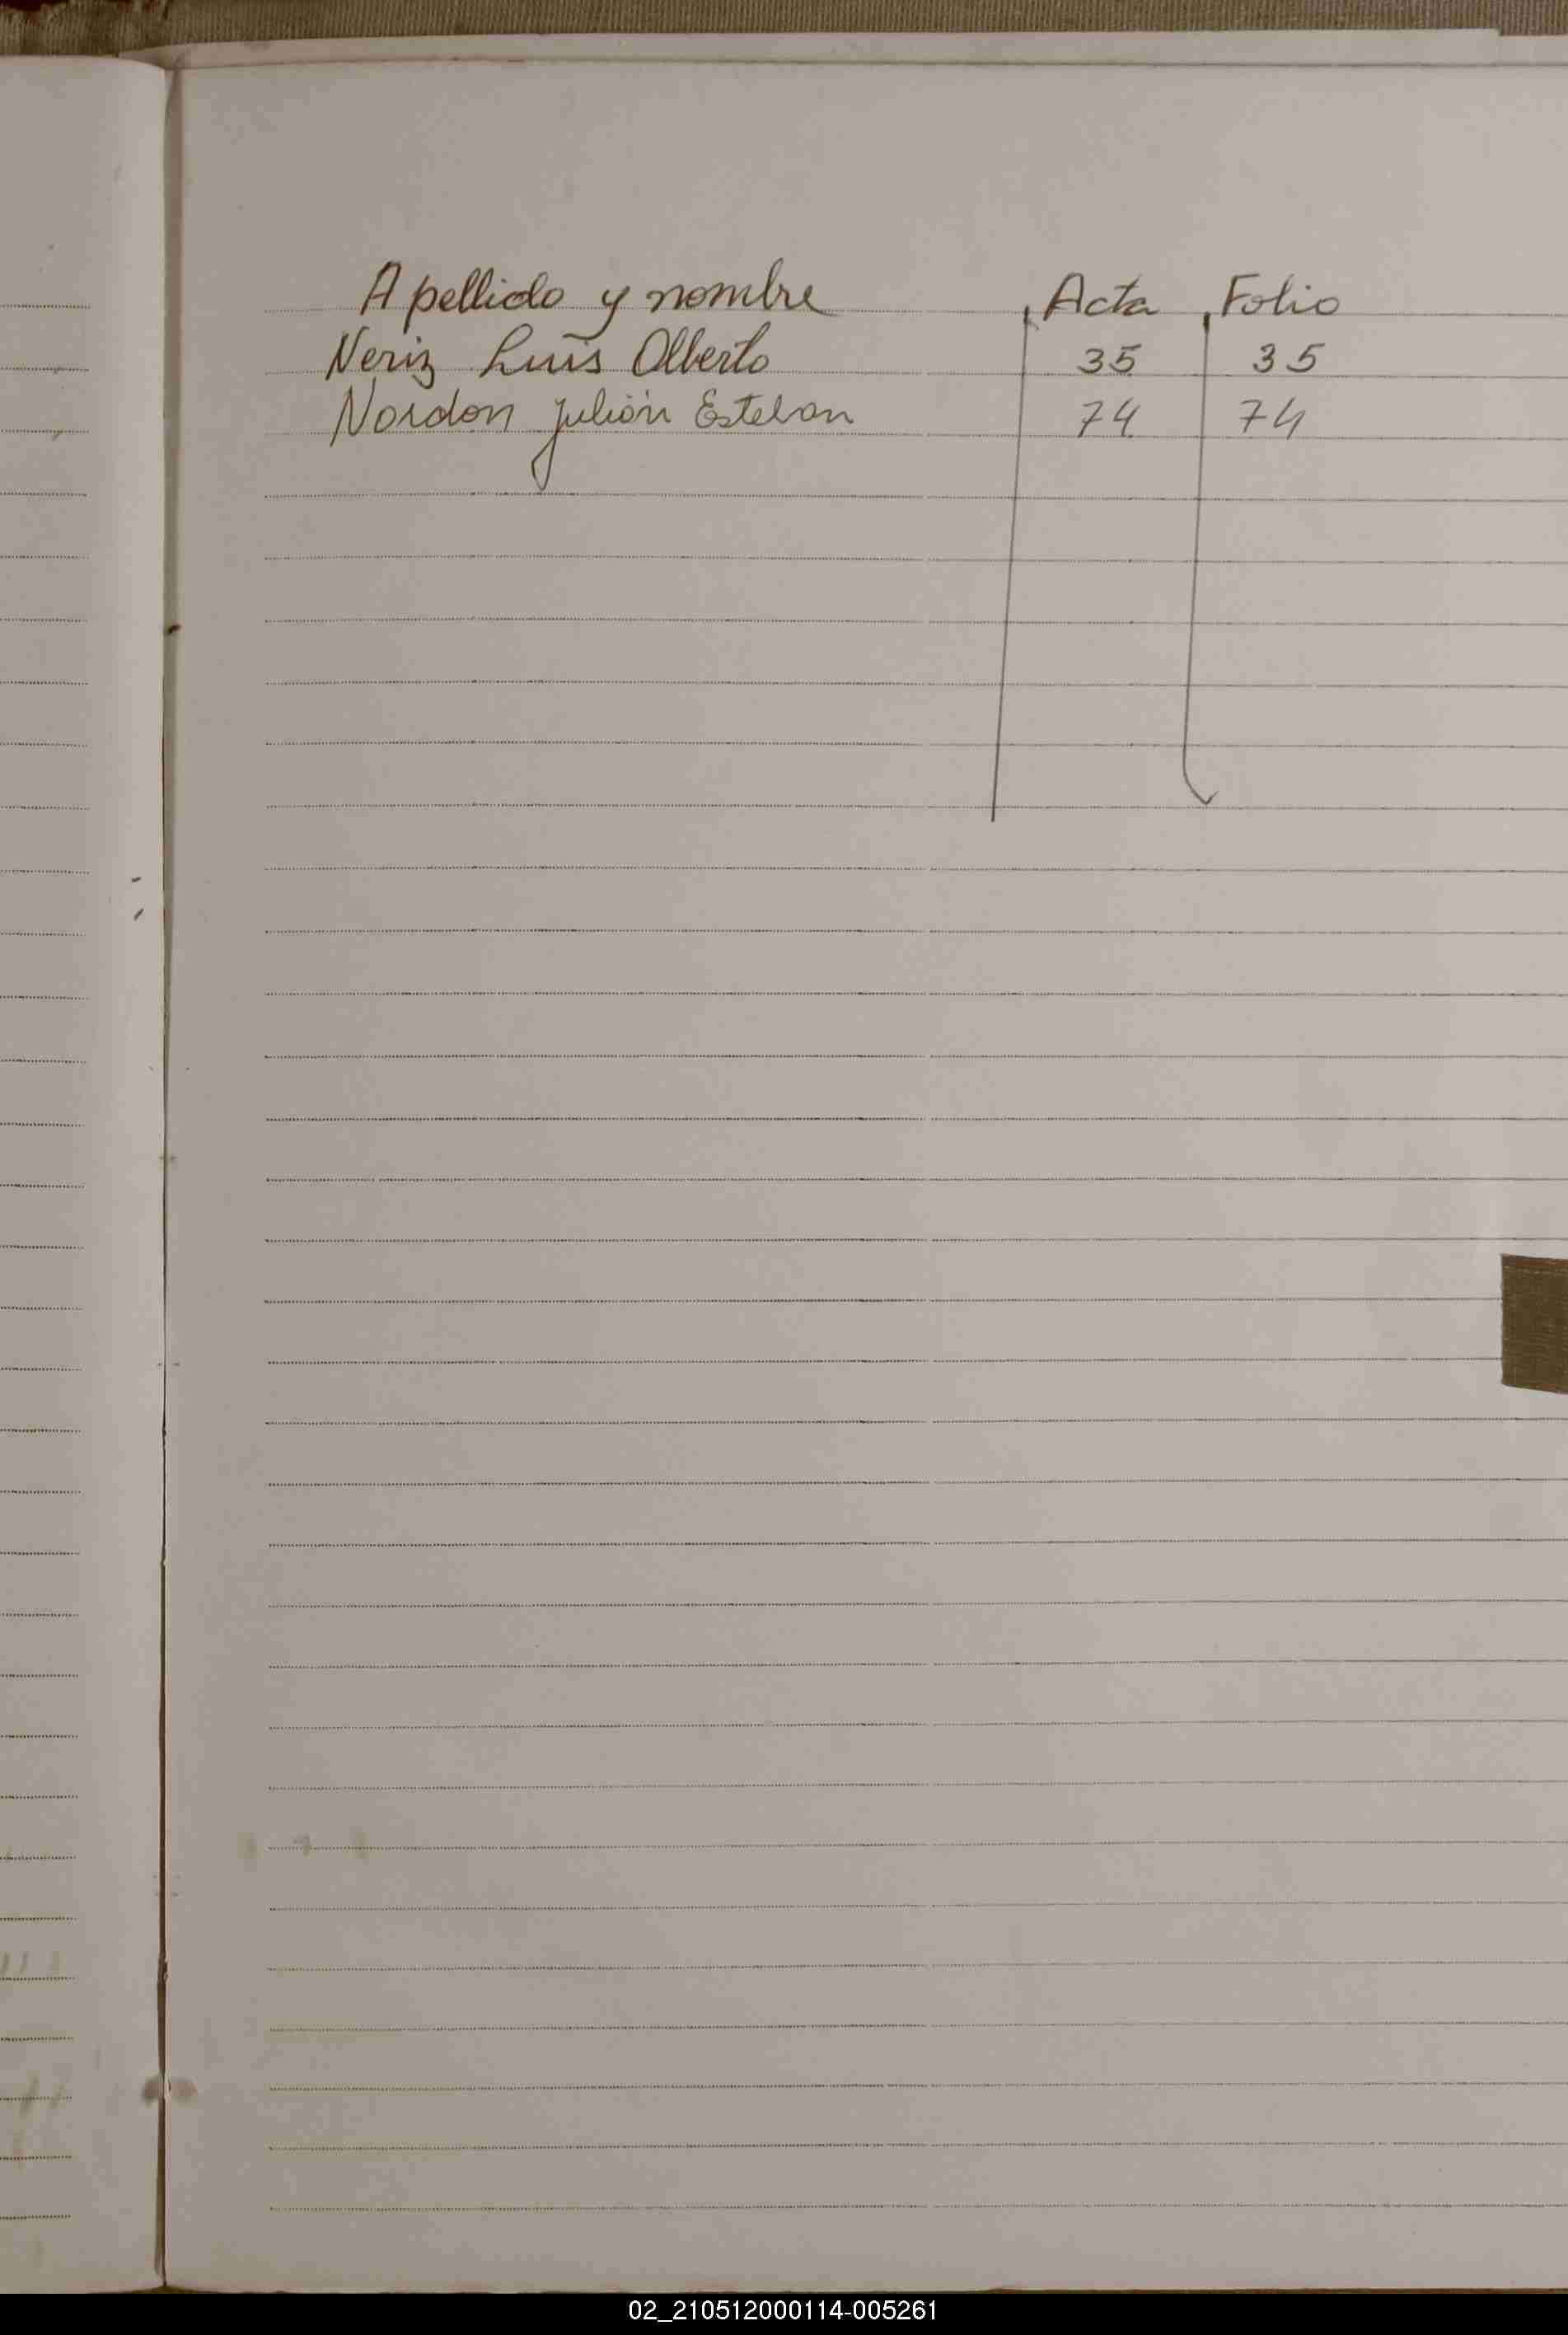 Apellido y nombre Acta Folio
Neriz Luis Alberto 35 35
Nordon Julián Esteban 74 74
02_210512000114-005261